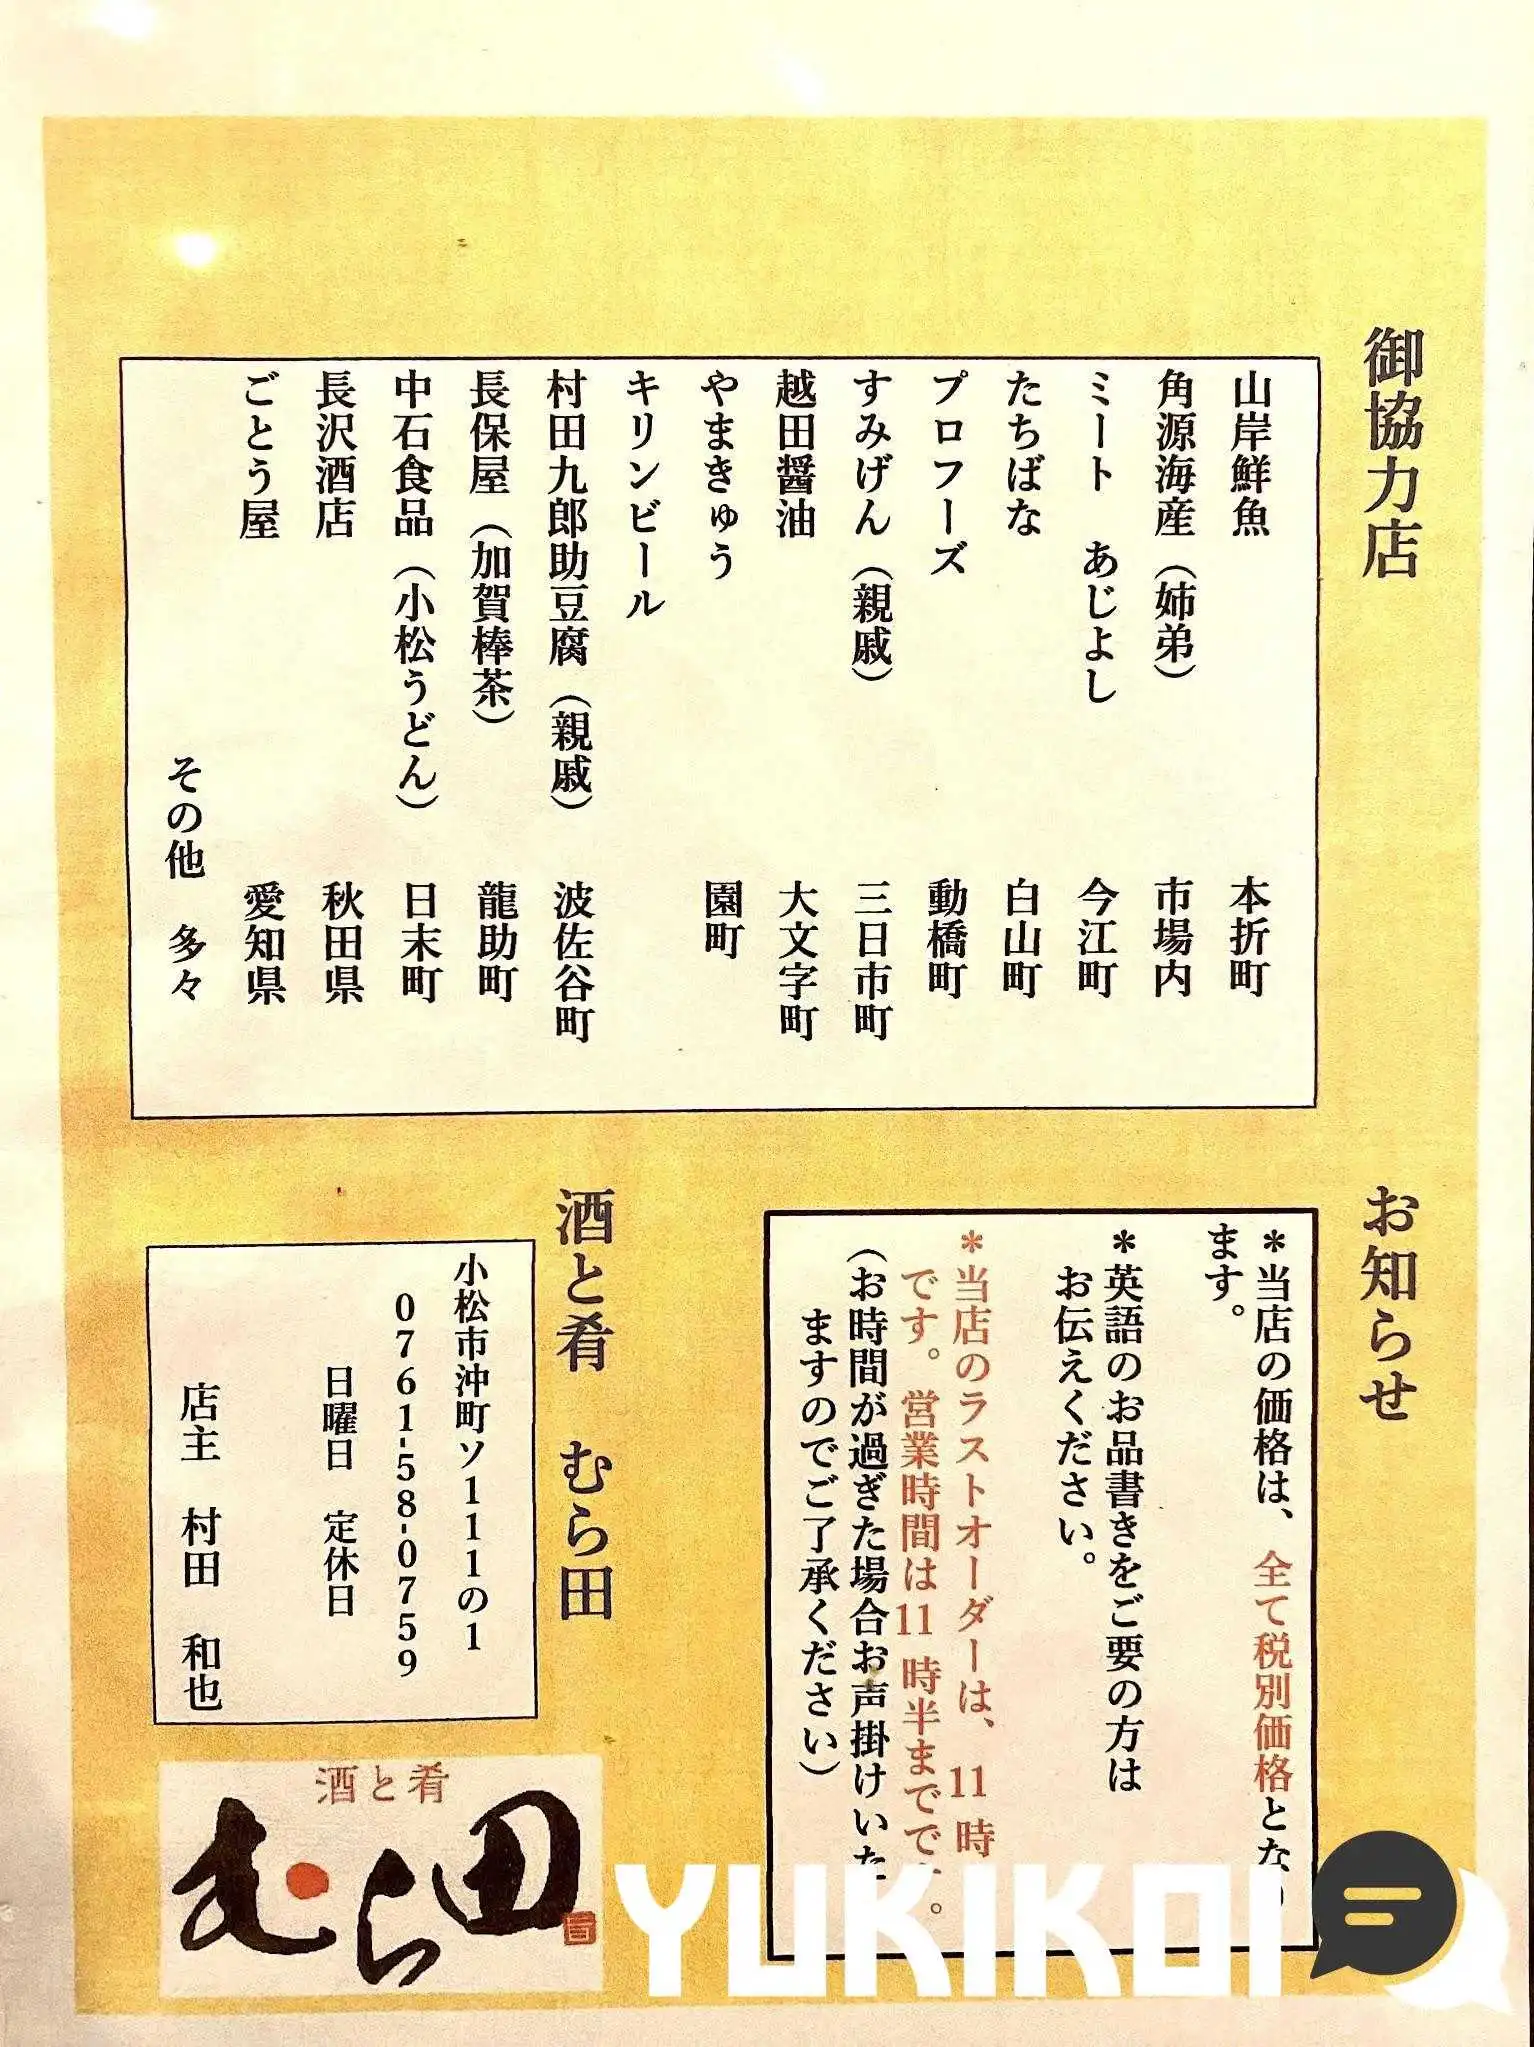 御協力店
山岸鮮魚　本折町
角源海産（姉弟）　市場内
ミート　あじよし　今江町
たちばな　白山町
プロフーズ　動橋町
すみげん（親戚）　三日市町
越田醤油　大文字町
やまきゅう　園町
キリンビール
村田九郎助豆腐（親戚）　波佐谷町
長保屋（加賀棒茶）　龍助町
中石食品（小松うどん）　日末町
長沢酒店　秋田県
ごとう屋　愛知県
その他　多々
お知らせ
＊当店の価格は、全て税別価格とな
ます。
＊英語のお品書きをご要の方は
お伝えください。
＊当店のラストオーダーは、11時
です。営業時間は11時半までで
（お時間が過ぎた場合お声掛けいた
ますのでご了承ください）
酒と肴　むら田
小松市沖町ソ111の1
0761-58-0759
日曜日　定休日
店主　村田　和也
酒と肴
むら田
YUKIKOI